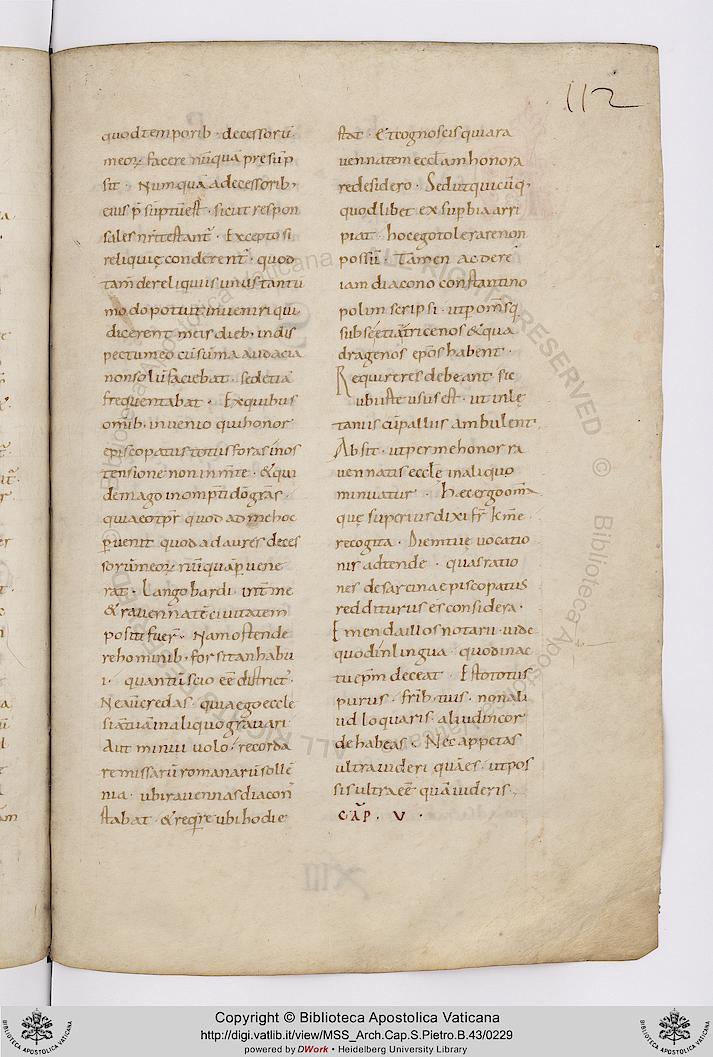 112
quodtemporib· decessoru̅
meoꝝ facere nu̅qua̅ presu̅p
sit · Numqua̅ adecessorib,
eius p̅ su̅ptu̅ est · sicut respon
sales nr̅i testant̅ · Excepto si
reliquię conderent̅ · quod
tam̅ dereliquiis unus tantu̅
modo potuit inueniri qui
dicerent meis dieb· indis
pectu meo cu̅ su̅ma audacia
nonsolu̅ faciebat · sedetia̅
frequentabat · Ex quibus
omib̅· inuenio quihonor
episcopatus totus foras inos
tensione non in m̅te · & qui
dem ago inomp̅ti do̅ gr̅as ·
quia eo tp̅r quod ad me hoc
peruenit quod adaures deces
soru̅ meoꝝ nu̅qua̅ peruene
rat · Langobardi int̅ me
& rauenn̅ate̅ ciuitatem
positi fuer̅ · Nam ostende
re hominib· forsitan habu
i · quantu̅ scio ee̅ district̅ ·
Ne aut̅ credas · quia ego eccle
sia̅ tua̅ inaliquo grauari
Aut minui uolo · recorda
re missaru̅ romanaru̅ solle̅
nia · ubi rauennas diacon̅
stabat · & reqr̅e ubi hodie
stat · & cognoscis quia ra
uennatem eccl̅am honora
re desidero · Sed ut quicu̅q·
quodlibet ex superbia arri
piat · hoc ego tolerare non
possu̅ · Tamen ac dere̅
iam diacono constantino
polim scripsi · ut p om̅s q̅
sub se etia̅ tricenos & qua
dragenos ep̅os habent ·
Requirere debeant sic
ubi iste usus est · ut in lę
tanis cu̅ pallus ambulent
Absit · ut per me honor ra
uennatis eccl̅e in aliquo
minuatur · hec ergo om̅a
quę superius dixi fr̅ km̅e
recogita · Diem tuę uocatio
nis adtende · quas ratio
nes de sarcina episcopatus
redditurus es considera ·
Emenda illos notarii uide
quod in lingua · quod in ac
tu ep̅m deceat · Esto totus
purus · frib̅ tuis · non ali
ud loquaris aliud in cor
de habeas · Nec appetas
ultra uideri qua̅ es · ut pos
sis ultra ee̅ qua̅ uideris
CAP̅ · V ·
XIII
Copyright © Biblioteca Apostolica Vaticana
http://digi.vatlib.it/view/MSS_Arch.Cap.S.Pietro.B.43/0229
powered by DWork • Heidelberg University Library